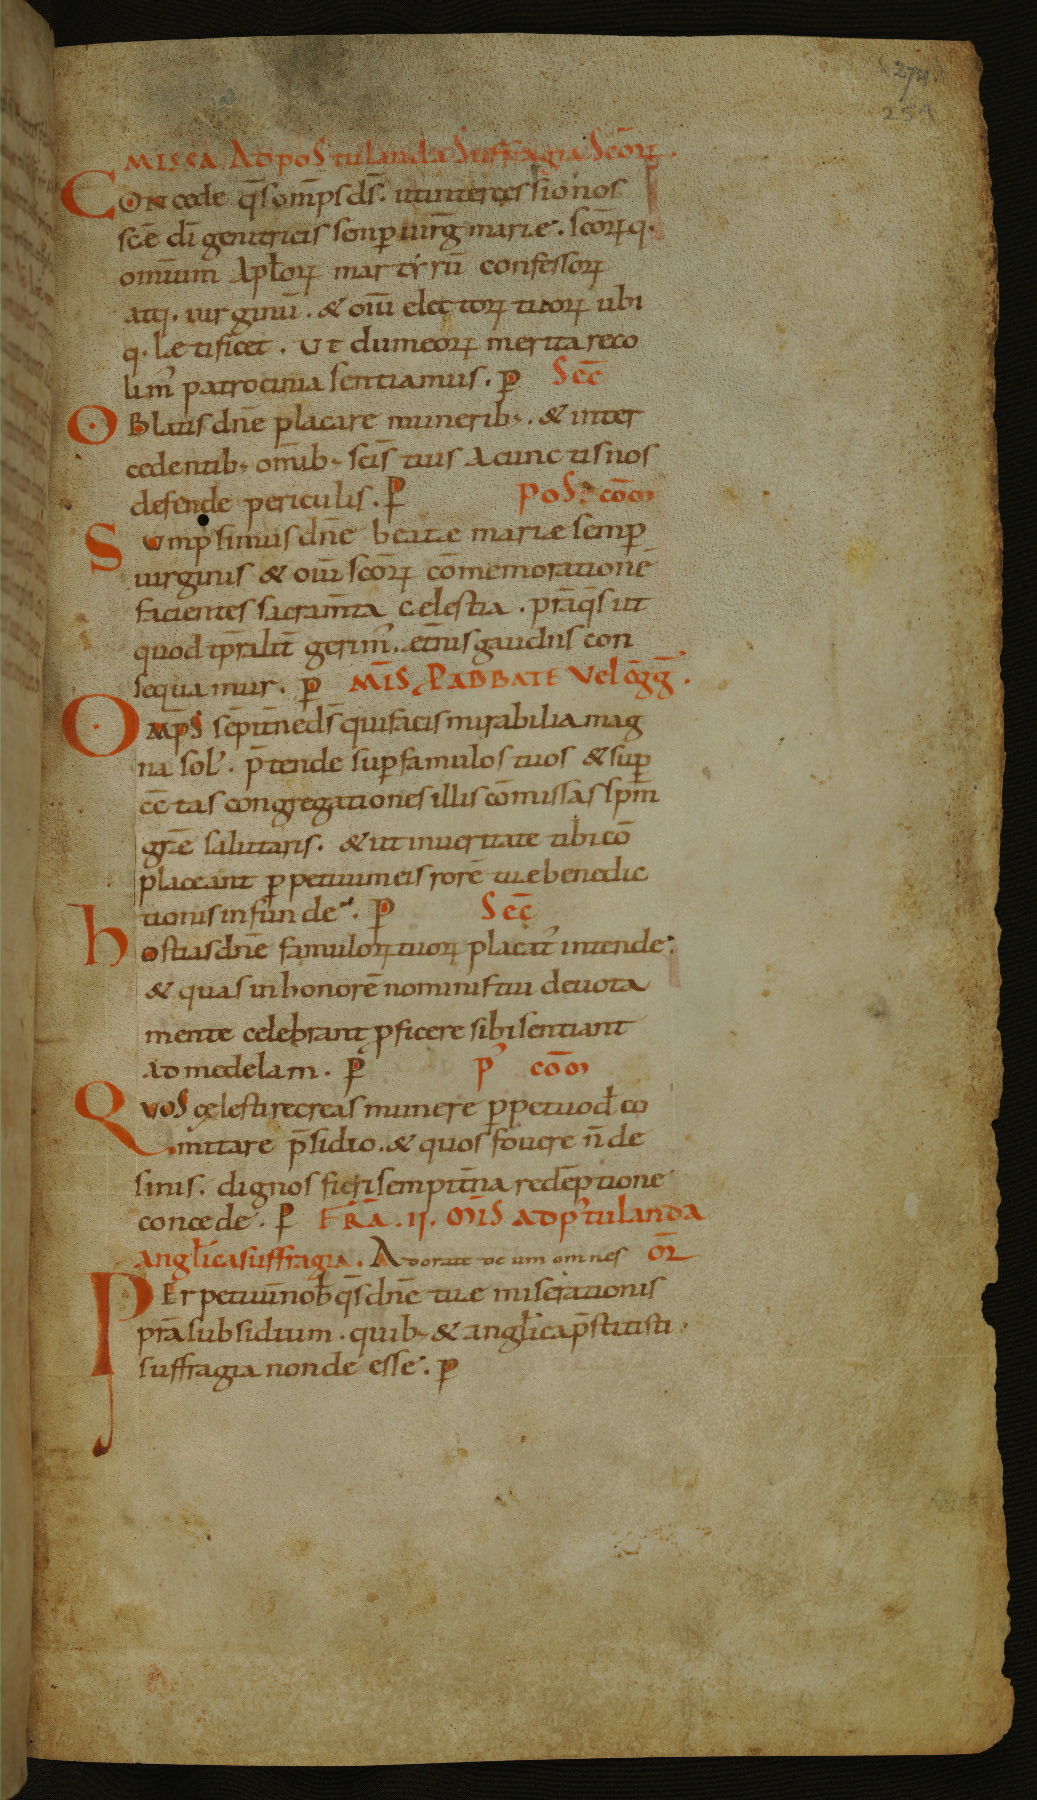 274
251
MISSA AdpoStulanda Suffragia Scōꝝ.
COncede q̄s om̄ps d̄s. ut intercessio nos
sc̄e dī genitricis semꝑ uirḡ marię. scōꝝq.
omnium Aplōꝝ martyrū confessoꝝ
atq. uirginū. & oīū electoꝝ tuoꝝ ubi
q. lętificet. Ut dum eoꝝ merita reco
lim᾽ patrocinia sentiamus. ꝑ Sec̄
OBlatis dn̄e placare munerib;. & inter
cedentib; om̄ib; scīs tuis A cunctis nos
defende periculis. P̄ PoSt com̄
Sumpsimus dn̄e beatæ mariæ semꝑ
uirginis & oīū scōꝝ cōmemoratione
facientes sacram̄ta cęlestia. pr̄a q̄s ut
quod tp̄ralit̄ gerim᾽. et̄nis gaudiis con
sequamur. ꝑ MIS̄ P ABBATE Vel c̄gḡ.
Om̄pS sēpit̄ne d̄s qui facis mirabilia mag
na sol᾽. p̄tende suꝑ famulos tuos & suꝑ
cc̄tas congregationes illis cōmissas sp̄m
gr̄ę salutaris. & ut in ueritate tibi cō
placeant ꝑpetuum eis rorē tuę benedic
tionis infunde. P̄ Sec̄
hostias dn̄e famuloꝝ tuoꝝ placat᾽ intende.
& quas in honorē nominis tui deuota
mente celebrant ꝓficere sibi sentiant
ad medelam. P̄ p᾽ com̄
QuoS cęlesti recreas munere ꝑpetuo d̄ co
mitare p̄sidio. & quos fouere n̄ de
sinis. dignos fieri sempit̄na redēptione
concede. P̄ FR̄A. II. MIS̄ Adp᾽tulanda
anglīca suffragia. Adorate deum omnes ōR
PErpetuū nob̄ q̄s dn̄e tuę miserationis
pr̄a subsidium. quib; & anglīca p̄stitisti
suffragia non deesse. ꝑ